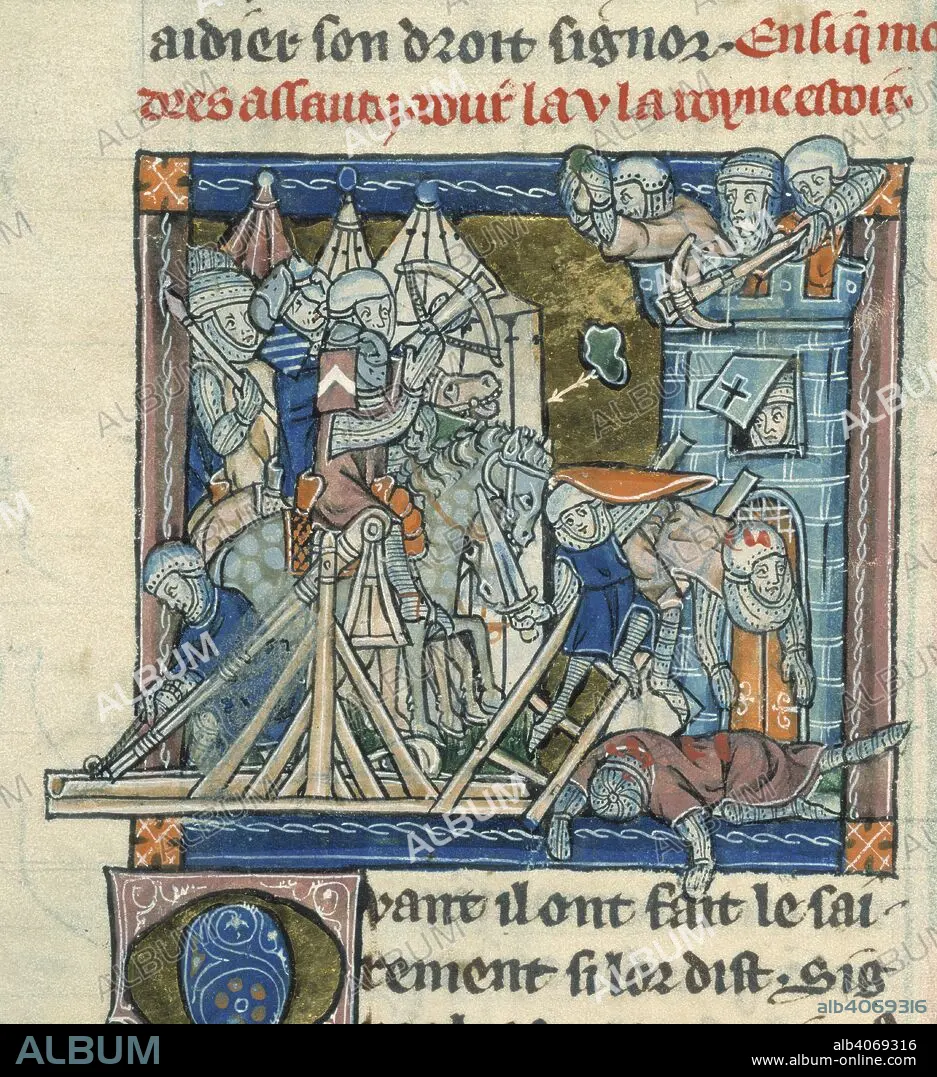 aidier son droit signor. Ensi q̃ mo
dres assaut la v la royne estoit.
vant il ont fait le sai-
rement si lor dist. Sig
ALBUM
alb4069316
ALBUM
alb4069316
www.album-online.com